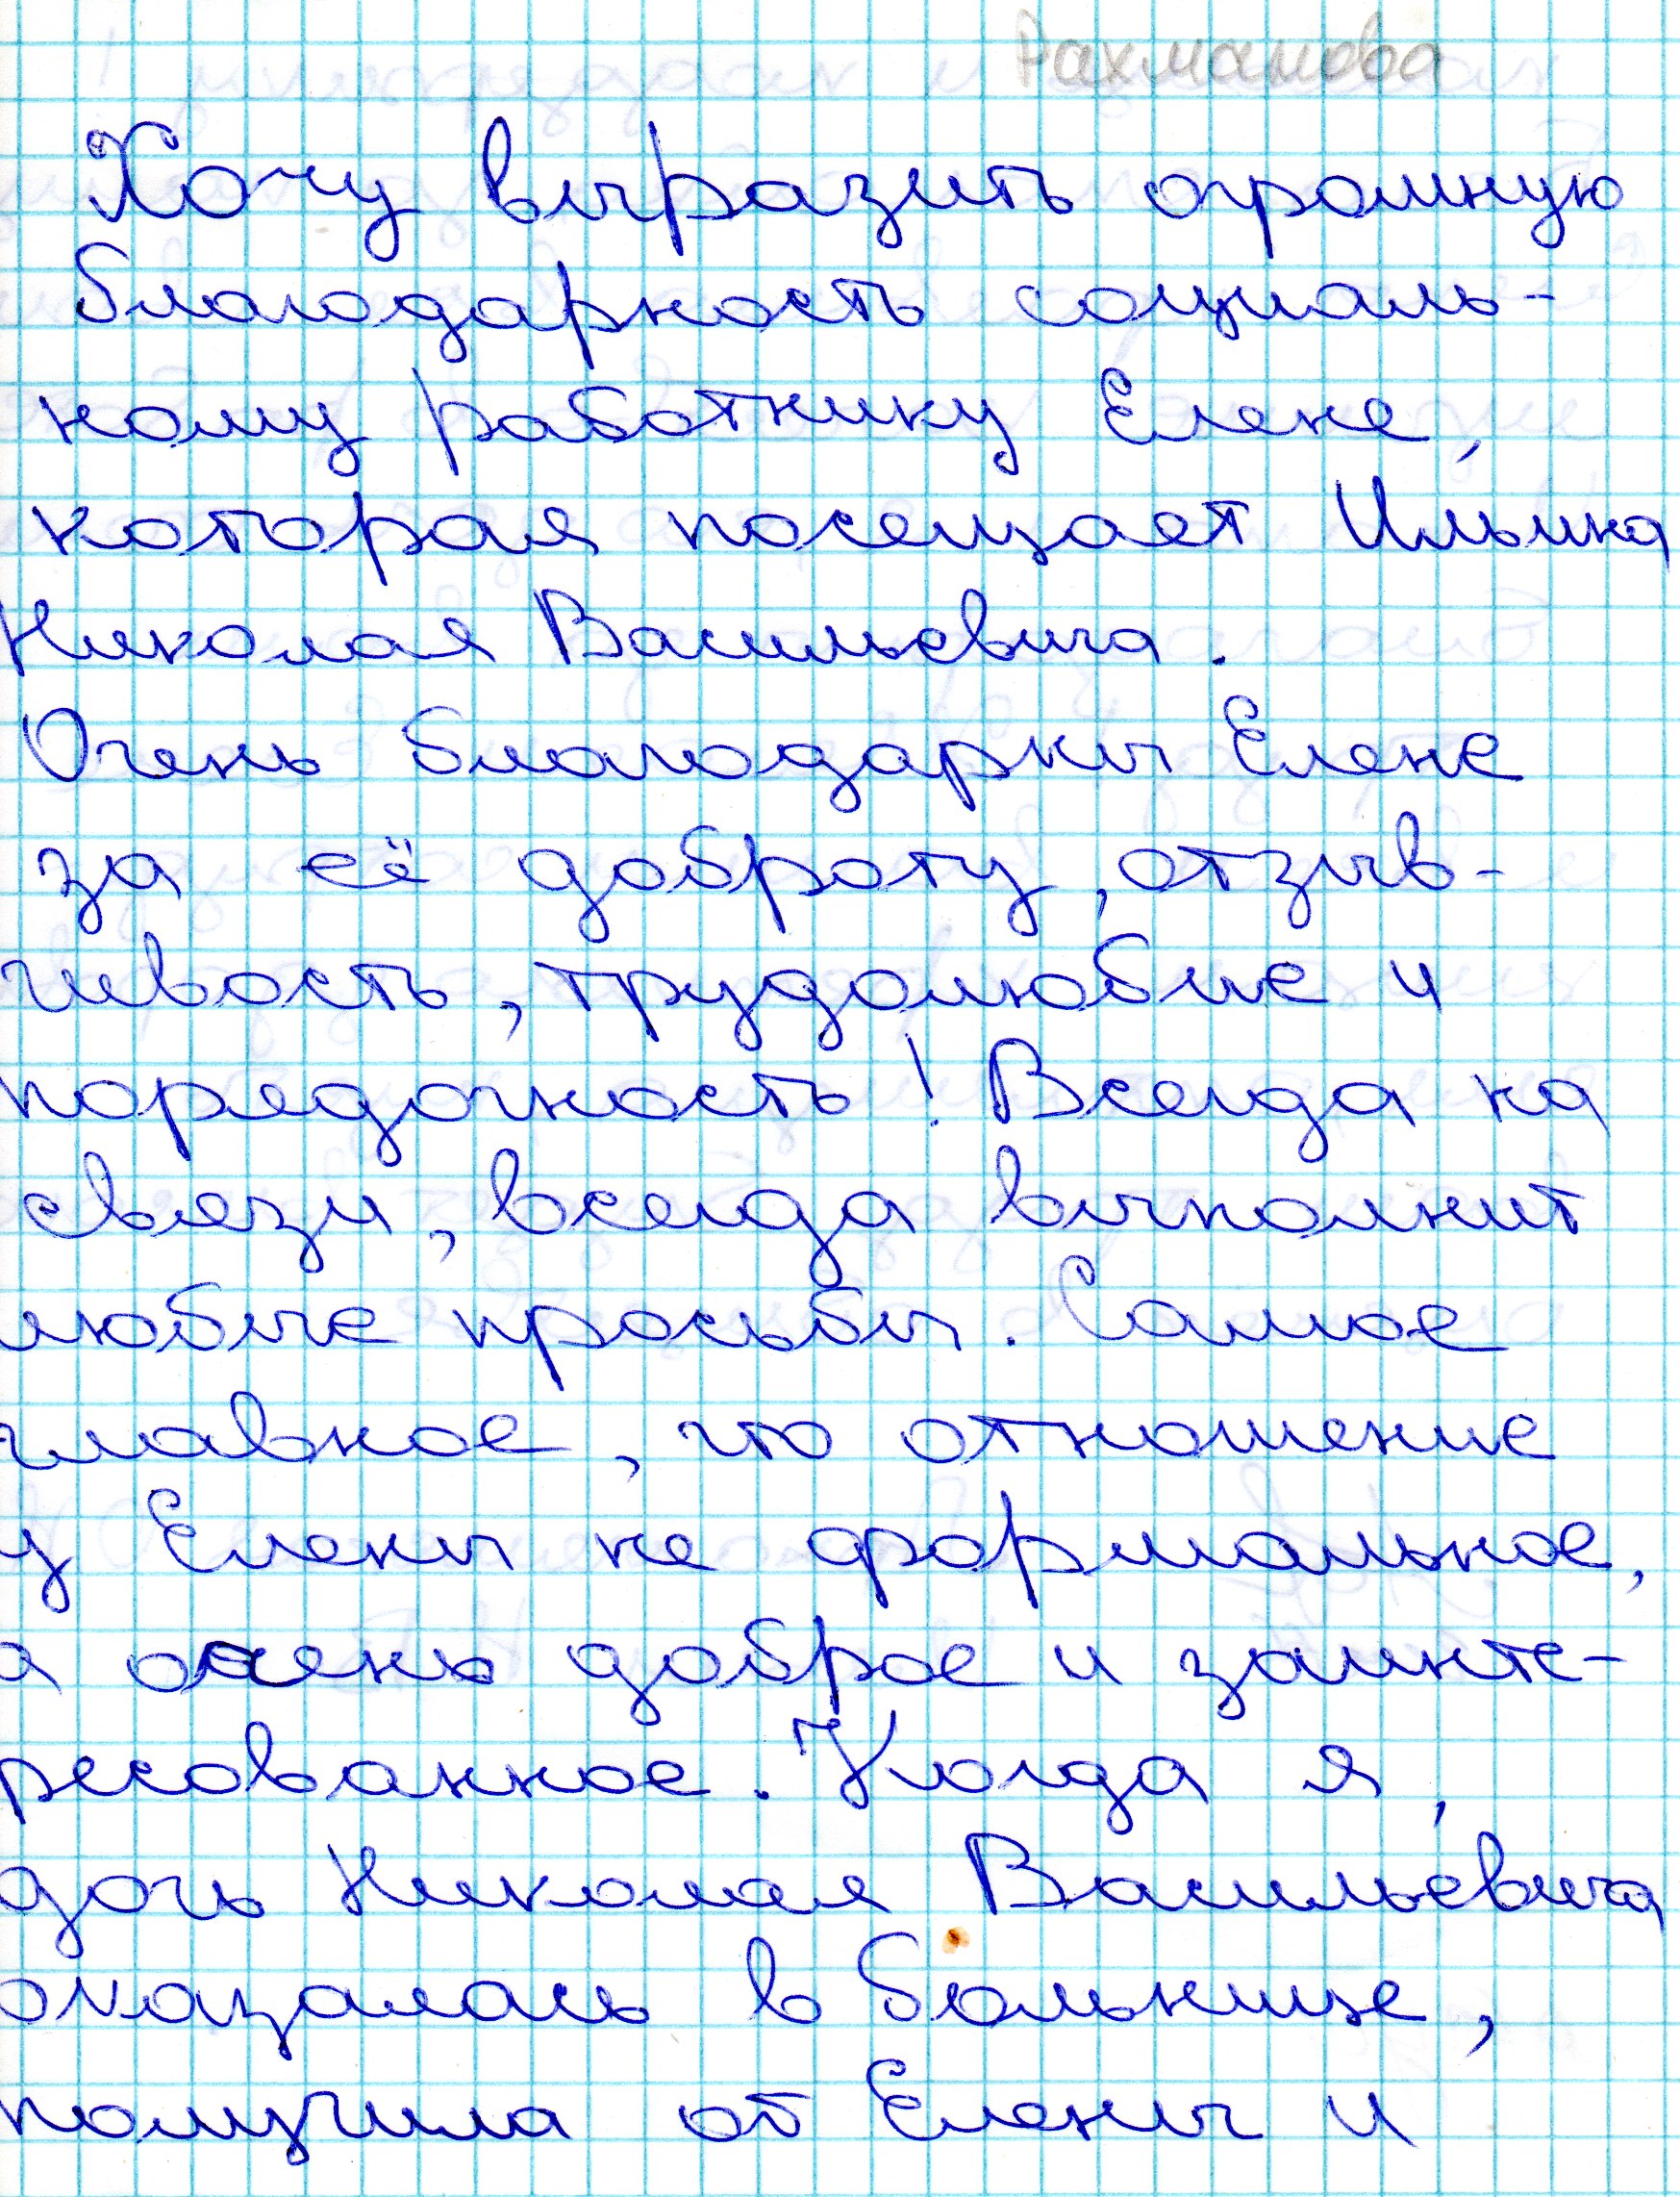 Рахманова
Хочу выразить огромную
благодарность социаль-
ному работнику Елене,
которая посещает Ильина
Николая Васильевича.
Очень благодарны Елене
за её доброту, отзыв-
чивость, трудолюбие и
порядочность! Всегда на
связи, всегда выполнит
любые просьбы. Самое
главное, что отношение
у Елены не формальное,
а очень доброе и заинте-
ресованное. Когда я,
дочь Николая Васильевича
оказалась в больнице,
получила от Елены и